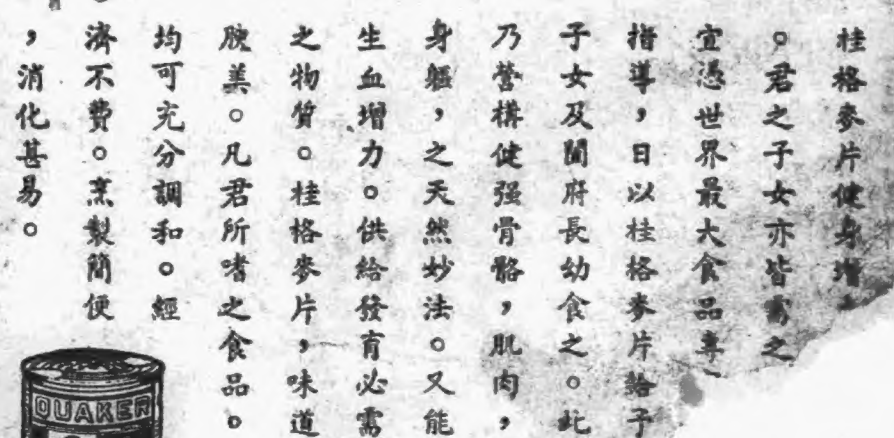 桂格麥片健身增
。君之子女亦皆需之
宜憑世界最大食品專
指導，日以桂格麥片給予
子女及閤府長幼食之。此
乃營構健强骨骼，肌肉，
身軀，之天然妙法。又能
生血增力。供給發育必需
之物質。桂格麥片，味道
腴美。凡君所嗜之食品。
均可充分調和。經
濟不費。烹製簡便
，消化甚易。
QUAKER